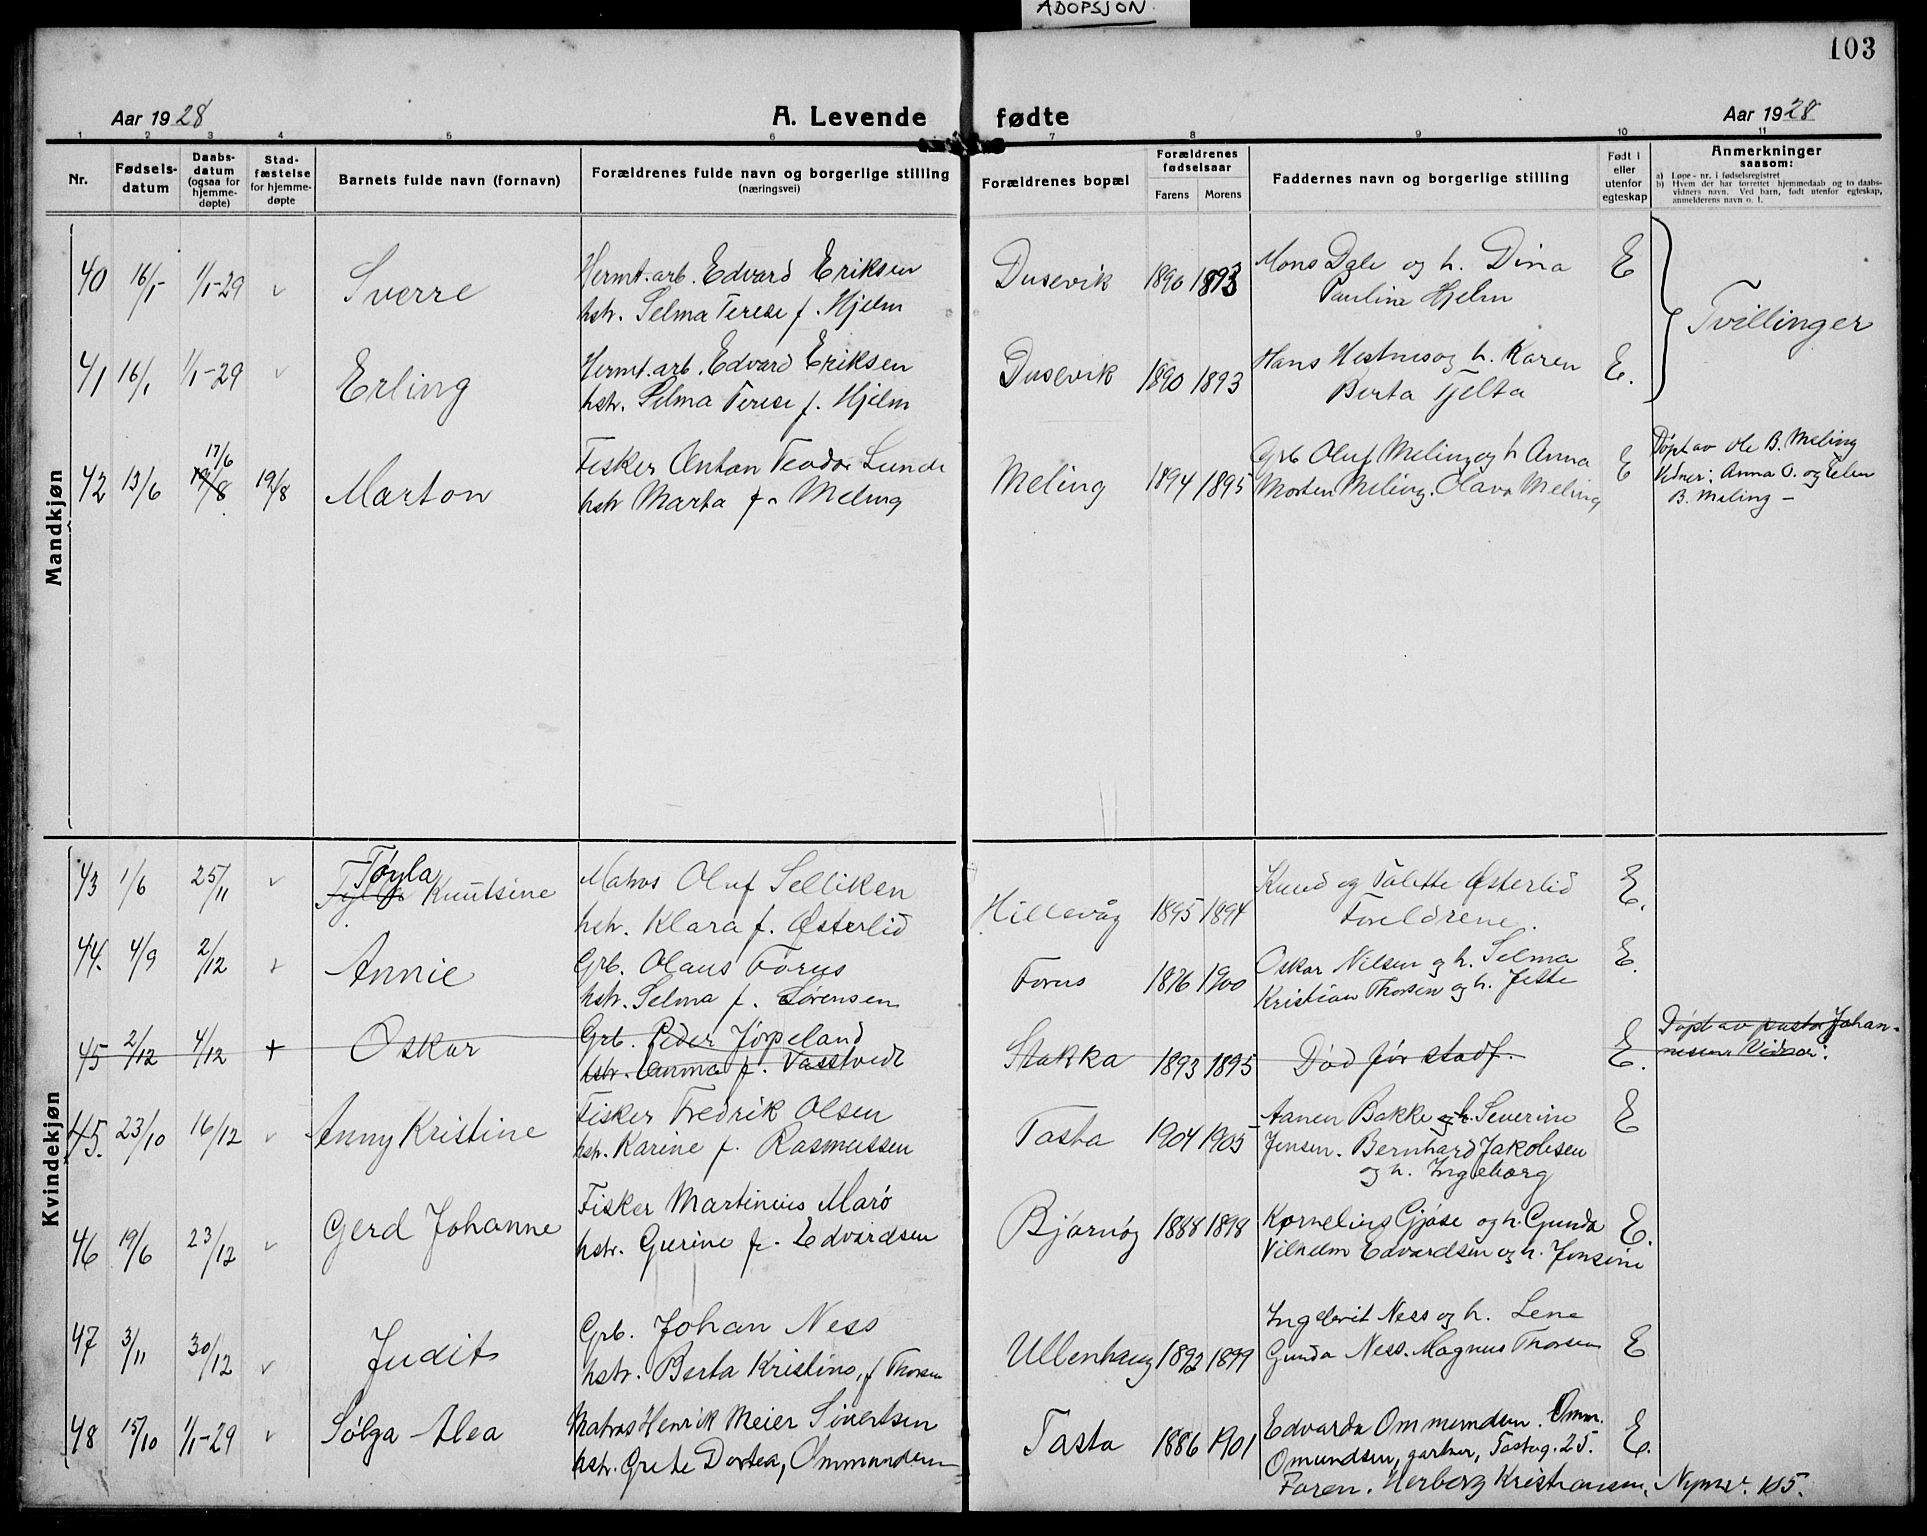 ADOPSJON.
103
Aar 1928 A. Levende fødte Aar 1928
1 2 3 4 5 6 7 8 9 10 11
Nr.
Fødsels-
datum
Daabs-
datum
(ogsaa for
hjemme-
døpte)
Stad-
fæstelse
for hjemme-
døpte
Barnets fulde navn (fornavn)
Forældrenes fulde navn og borgerlige stilling
(næringsvei)
Forældrenes bopæl
Forældrenes
fødselsaar
Farens Morens
Faddernes navn og borgerlige stilling
Født i
eller
utenfor
egteskap
Anmerkninger
saasom:
a) Løpe-nr. i fødselsregistret
b) Hvem der har forrettet hjemmedaab og to daabs-
vidners navn. Ved barn, født utenfor egteskap,
anmelderens navn o. l.
Mandkjøn
40 16/1- 1/1-29 Sverre
Hermt.arb. Edvard Eriksen
hstr. Selma Terese f. Hjelm
Dusevik 1890 1893
Mons Dale og h. Dina
Pauline Hjelm
E
Tvillinger
41 16/1 1/1-29 Erling
Hermt.arb. Edvard Eriksen
hstr. Selma Terese f. Hjelm
Dusevik 1890 1893
Hans Hestnes og h. Karen
Berta Tjelta
E.
17/6
42 13/6 19/8 19/8 Marton
Fisker Anton Teodor Lunde
hstr Marta f. Meling
Meling 1894 1895
Grb Oluf Meling og h Anna
Morten Meling. Olava Meling
E
Døpt av Ole B. Meling
Vidner: Anna O. og Elen
B. Meling -
Kvindekjøn
Tøyla
43 1/6 25/11 Knutsine
Matros Oluf Selliken
hstr. Klara f. Østerlid
Hillevåg 1895 1894
Knud og Talette Østerlid
Foreldrene.
E.
44. 4/9 2/12 Annie
Grb. Olaus Forus
hstr. Selma f. Sørensen
Forus 1876 1900
Oskar Nilsen og h. Selma
Kristian Thorsen og h. Jette
E.
45 2/12 4/12 + Oskar
Grb. Peder Jørpeland
hstr. Anna f. Vasstvedt
Stakka 1893 1895
Død før stadf.
E.
Døpt av pastor Johan-
nesen Vidner:
45. 23/10 16/12 Anny Kristine
Fisker Fredrik Olsen
hstr. Karine f. Rasmussen
Tasta 1904 1905
Aanen Bakke og h. Severine
Jensen. Bernhard Jakobsen
og h. Ingeborg
E
46 19/6 23/12 Gerd Johanne
Fisker Martinius Marø
hstr. Gurine f. Edvardsen
Bjørnøy 1888 1898
Kornelius Gjøse og h. Gunda
Vilhelm Edvardsen og h. Jensine
E.
47 3/11 30/12 Judit
Grb. Johan Ness
hstr. Berta Kristine, f Thorsen
Ullenhaug 1892 1899
Ingebrit Ness og h. Lene
Gunda Ness. Magnus Thorsen
E
48 15/10 1/1-29 Sølga Alea
Matros Henrik Meier Sivertsen
hstr. Grete Dortea, Ommundsen
Tasta 1886 1901
Edvarda Ommundsen. Omm.
Omundsen, gartner, Tastag. 25.
Faren. Herborg Kristiansen, Nymv. 105.
E.